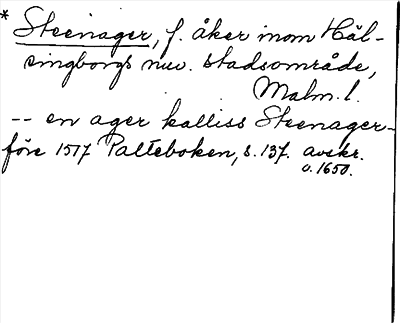 * Steenager, f. åker inom Häl-
singborgs nuv. stadsområde,
Malm. l.
-- en ager kalliss Steenager-
före 1517 Palteboken, s. 137. avskr.
o. 1650.